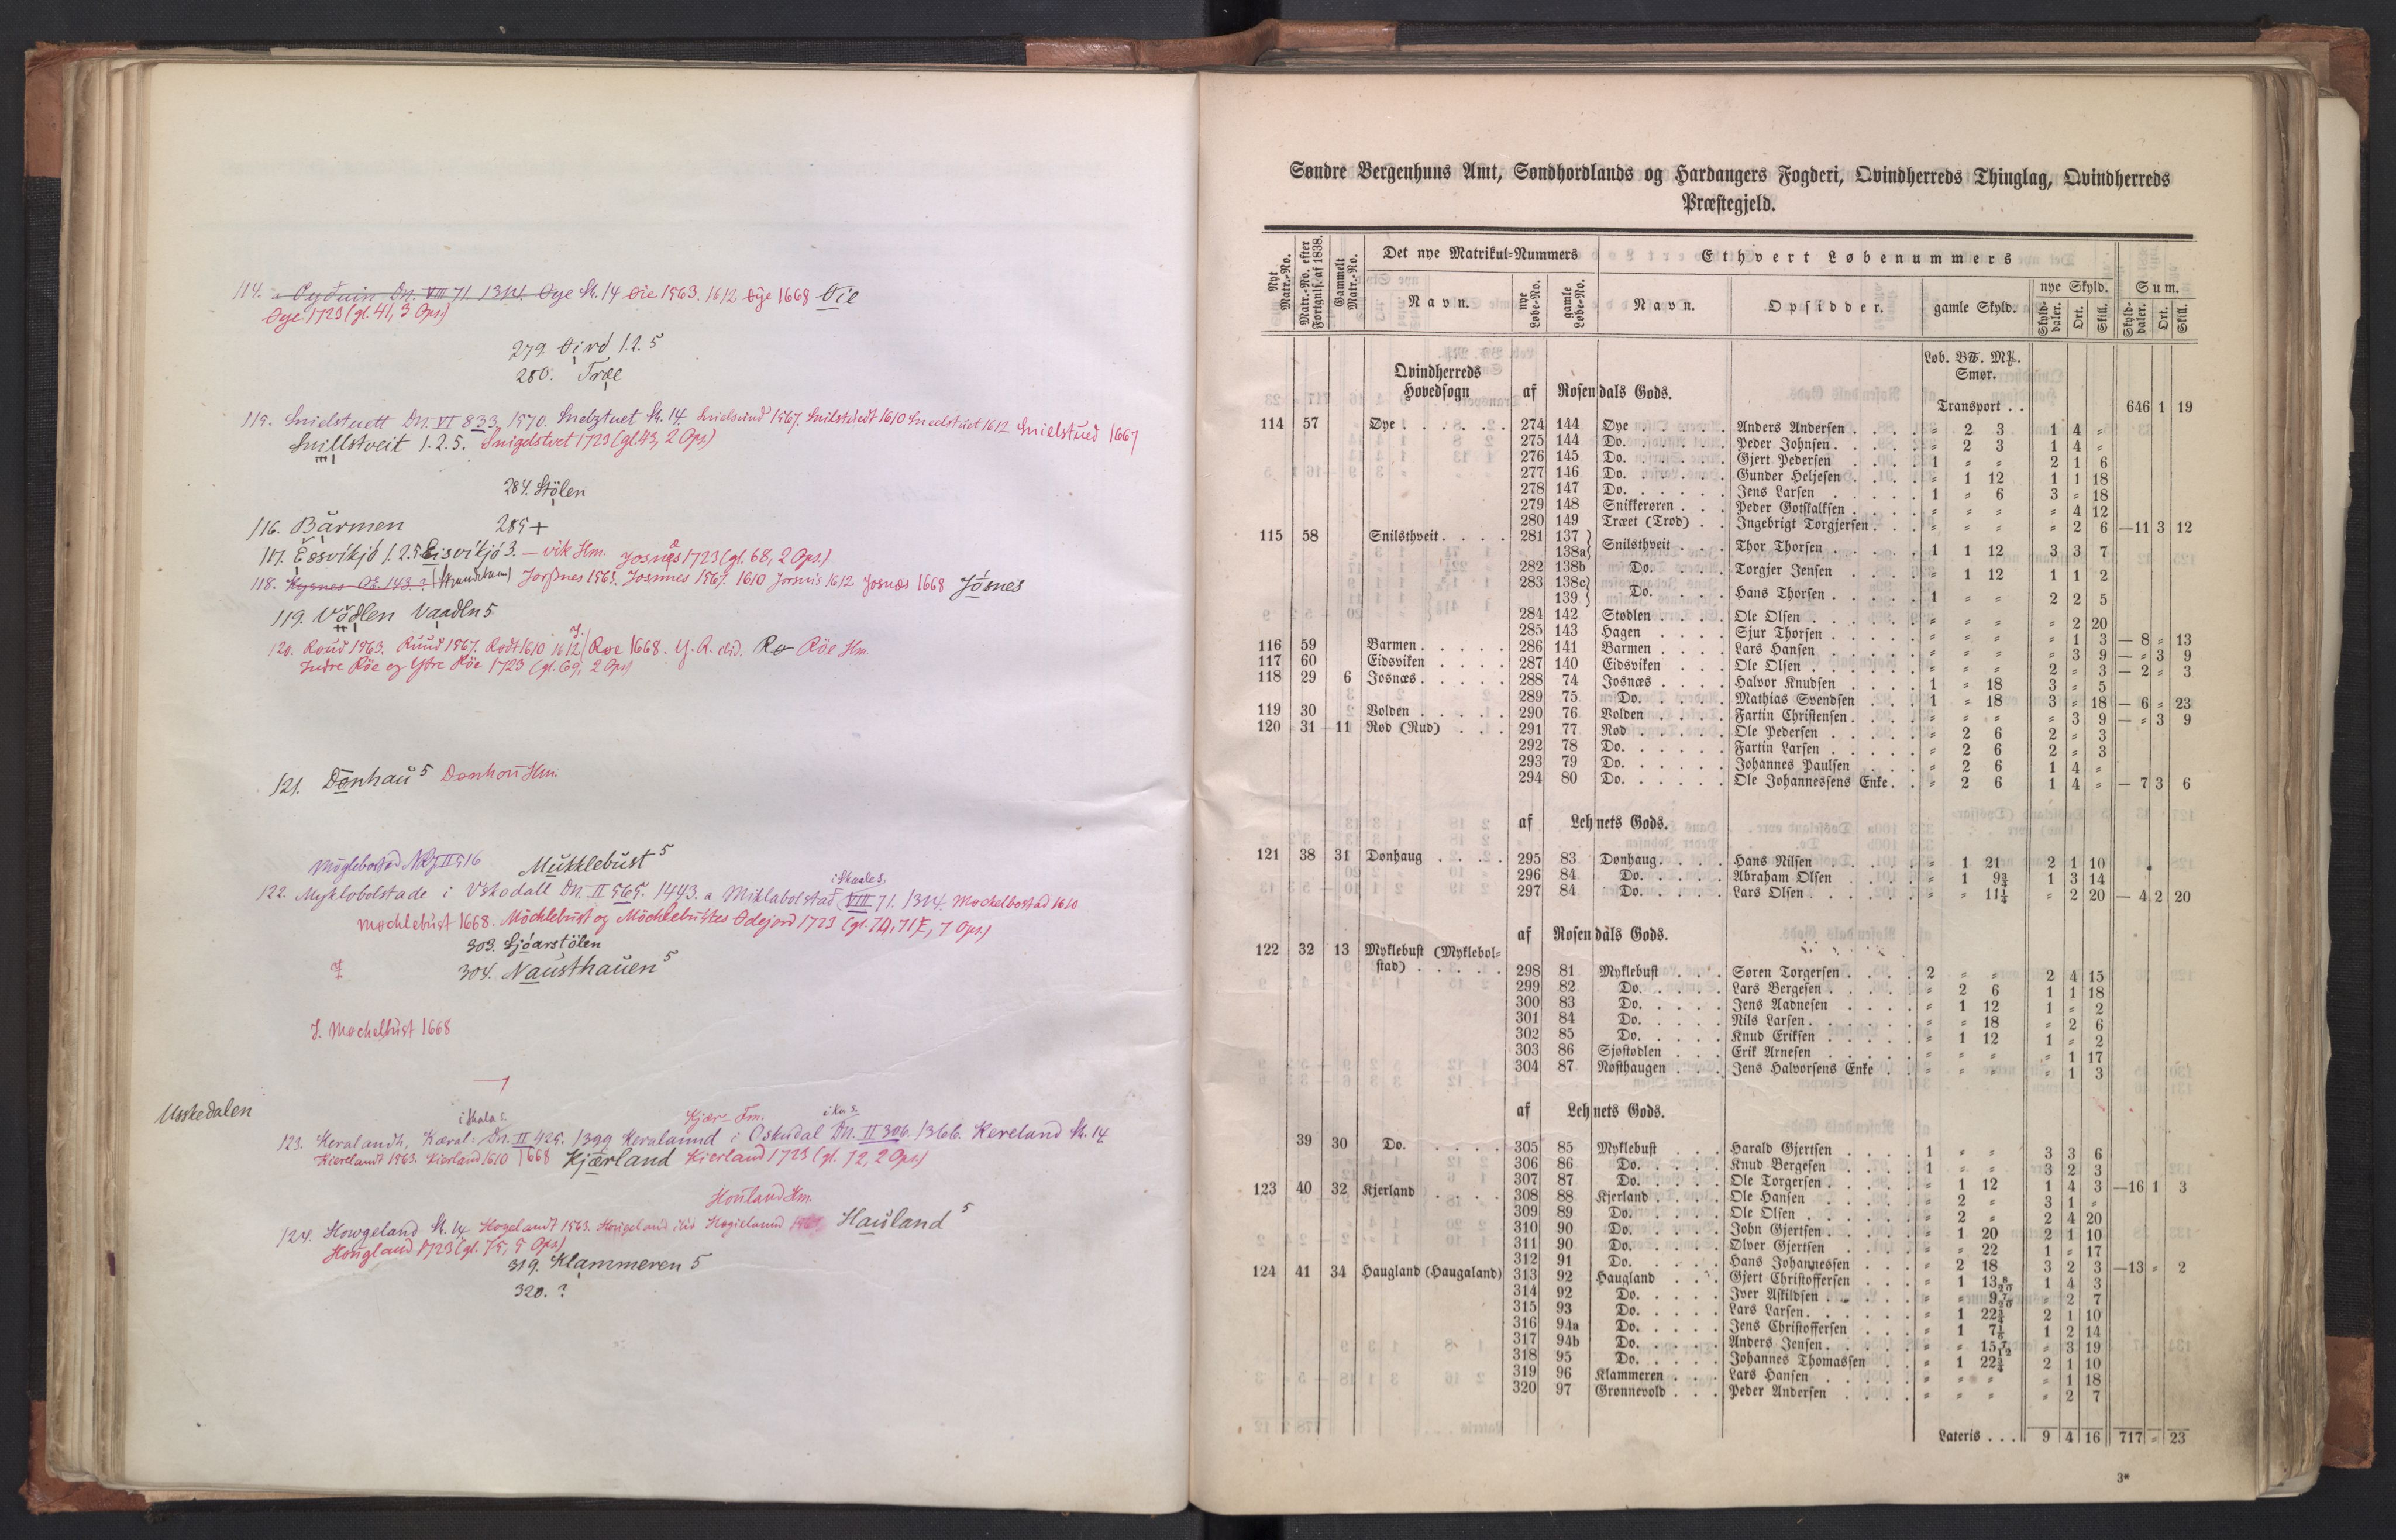 114. a Øydiuin Dn. VIII 71. 1314. Øye St. 14 Øie 1563. 1612 Øye 1668 Øie
Øye 1723 (gl. 41, 3 Ops.)
279. Øird 1. 2. 5
280. Træe
115. Snielstuett Dn. VI 833. 1570. Snelztuet St. 14. 1567. 1610 1612 Snielstued 1667
Snillstveit 1. 2. 5. Snigelstvet 1723 (gl. 43, 2 Ops.)
284. Stölen
116. Bărmen 285 +
117. Essvikjó 1. 2. 5 Eisvikjó 3. – vik Hm. Josnæs 1723 (gl. 68, 2 Ops.)
118. Kysnes OE. 143. ? (Strandebarm) Jorsnes 1563. Josnnes 1567. 1610 Jorsnis 1612 Josnæs 1668 Jósnes
119. Vŏdlen Vaadln 5
120. Roud 1563. Ruud 1567. Rødt 1610 1612 / Roe 1668. Y. R. ibid. Rø Röe Hm.
Indre Röe og Ytre Röe 1723 (gl. 69, 2 Ops.)
121. Dønhau 5 Dønhou Hm.
Möglebostad NRJ II 516 Mukklebust 5
122. Myklobolstade i Vskodall Dn. II 565. 1443. a Miklabolstad i Skaale s. VIII 71. 1314. Mockelbostad 1610
Møchlebust 1668. Möchlebust og Möchlebustes Ødejord 1723 (gl. 70, 71, 7 Ops.)
303. Sjóarstölen
304. Nausthauen 5
J. Møckelbust 1668
Usskedalen
i Skala s. Kjær- Fm. i Ska s.
123. Keralandh, Kæral: Dn. II 425. 1399 Keralannd i Oskudal Dn. II 306. 1366. Kereland St. 14
Kierelandt 1563. Kierland 1610 1668 Kjærland Kierland 1723 (gl. 72, 2 Ops.)
Houland Hm.
124. Howgeland St. 14 Hogelandt 1563. Hougeland ibid Høgieland Hauland 5
Hougland 1723 (gl. 75, 5 Ops.)
319. Klammeren 5
320. ?
Søndre Bergenhuus Amt, Søndhordlands og Hardangers Fogderi, Qvindherreds Thinglag, Qvindherreds
Præstegjeld.
Nyt Matr.-No. Matr.-No. efter Fortegnls. af 1838. Gammelt Matr.-No. Det nye Matrikul-Nummers Ethvert Løbenummers
Navn. nye Løbe-No. gamle Løbe-No. Navn. Opsidder. gamle Skyld. nye Skyld. Skylddaler. Ort. Skill. Sum. Skylddaler. Ort. Skill.
Løb. B℔. M℔.
Smør.
Qvindherreds
Hovedsogn af Rosendals Gods.
Transport . . 646 1 19
114 57 Øye . . . 274 144 Øye . . . Anders Andersen . . . " 2 3 1 4 "
275 144 Do. . . . Peder Johnsen . . . " 2 3 1 4 "
276 145 Do. . . . Gjert Pedersen . . . 1 " " 2 1 6
277 146 Do. . . . Gunder Heljesen . . . " 1 12 1 1 18
278 147 Do. . . . Jens Larsen . . . 1 " 6 3 " 18
279 148 Snikkerøren . . Peder Gotskalksen . . . " " " " 4 12
280 149 Træet (Trød) . . Ingebrigt Torgjersen . . . " " " " 2 6 — 11 3 12
115 58 Snilsthveit . . . 281 137 } 138a } Snilsthveit . . . Thor Thorsen . . . 1 1 12 3 3 7
282 138b Do. . . . Torgjer Jensen . . . " 1 12 1 1 2
283 138c } 139 } Do. . . . Hans Thorsen . . . 1 " " 2 2 5
284 142 Stødlen . . . Ole Olsen . . . " " " " 2 20
285 143 Hagen . . . Sjur Thorsen . . . " " " " 1 3 — 8 " 13
116 59 Barmen . . . 286 141 Barmen . . . Lars Hansen . . . " " " " 3 9 — " 3 9
117 60 Eidsviken . . . 287 140 Eidsviken . . . Ole Olsen . . . " " " 2 " 3 — 2 " 3
118 29 6 Josnæs . . . 288 74 Josnæs . . . Halvor Knudsen . . . 1 " 18 3 " 5
289 75 Do. . . . Mathias Svendsen . . . 1 " 18 3 " 18 — 6 " 23
119 30 Volden . . . 290 76 Volden . . . Fartin Christensen . . . " " " " 3 9 — " 3 9
120 31 11 Rød (Rud) . . . 291 77 Rød . . . Ole Pedersen . . . " 2 6 2 " 3
292 78 Do. . . . Fartin Larsen . . . " 2 6 2 " 3
293 79 Do. . . . Johannes Paulsen . . . " 2 6 1 4 "
294 80 Do. . . . Ole Johannessens Enke . . " 2 6 1 4 " — 7 3 6
af Lehnets Gods.
121 38 31 Dønhaug . . . 295 83 Dønhaug . . . Hans Nilsen . . . " 1 21 2 1 10
296 84 Do. . . . Abraham Olsen . . . " 1 9¾ 1 3 14
297 84 Do. . . . Lars Olsen . . . " " 11¼ " 2 20 — 4 2 20
af Rosendals Gods.
122 32 13 Myklebust (Myklebol-
stad) . . . 298 81 Myklebust . . . Søren Torgersen . . . 2 " " 2 4 15
299 82 Do. . . . Lars Bergesen . . . " 2 6 1 1 18
300 83 Do. . . . Jens Aadnesen . . . " 1 12 1 " 2
301 84 Do. . . . Nils Larsen . . . " " 18 " 2 6
302 85 Do. . . . Knud Eriksen . . . " 1 12 1 " 2
303 86 Sjøstødlen . . . Erik Arnesen . . . " " " " 1 17
304 87 Nøsthaugen . . . Jens Halvorsens Enke . . " " " " 1 3
af Lehnets Gods.
39 30 Do. . . . 305 85 Myklebust . . . Harald Gjertsen . . . 1 " " 3 3 6
306 86 Do. . . . Knud Bergesen . . . 1 " " 3 2 3
307 87 Do. . . . Ole Torgersen . . . " 1 12 1 4 3 — 16 1 3
123 40 32 Kjerland . . . 308 88 Kjerland . . . Ole Hansen . . . " 2 " 3 1 "
309 89 Do. . . . Ole Olsen . . . " 2 " 2 4 20
310 90 Do. . . . John Gjertsen . . . " 1 20 2 1 10
311 90 Do. . . . Olver Gjertsen . . . " " 22 1 " 17
312 91 Do. . . . Hans Johannessen . . . " 2 18 3 2 3 — 13 " 2
124 41 34 Haugland (Haugaland) 313 92 Haugland . . . Gjert Christoffersen . . . " 1 13 8/20 1 4 3
314 92 Do. . . . Iver Askildsen . . . " " 9 7/20 " 2 7
315 93 Do. . . . Lars Larsen . . . " 1 22¾ 2 1 10
316 94a Do. . . . Jens Christoffersen . . . " 1 7⅙ 1 2 14
317 94b Do. . . . Anders Jensen . . . " " 15 7/12 " 3 19
318 95 Do. . . . Johannes Thomassen . . . " 1 22¾ 2 1 10
319 96 Klammeren . . . Lars Hansen . . . " " " " 1 18
320 97 Grønnevold . . . Peder Andersen . . . " " " " 2 7
Lateris . . . 9 4 16 717 " 23
3*